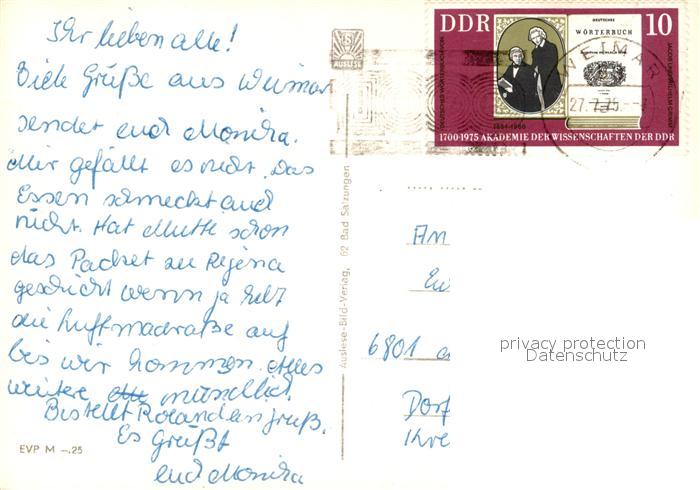 Ihr lieben alle!
Viele Grüße aus Weimar
sendet euch Monika.
Mir gefällt es nicht. Das
Essen schmeckt auch
nicht. Hat Mutti schon
das Packet zu Regina
geschickt wenn ja hebt
die Luftmadraße auf
bis wir kommen. Alles
weitere mündlich.
Bestellt Roland den Gruß.
Es Grüßt
euch Monika
EVP M -.25
Auslese-Bild-Verlag, 62 Bad Salzungen
AUSLESE
DDR
10
DEUTSCHES
WÖRTERBUCH
1854-1960
1700-1975 AKADEMIE DER WISSENSCHAFTEN DER DDR
WEIMAR
27.7.75
An
6801
Dorf
Kre
privacy protection
Datenschutz